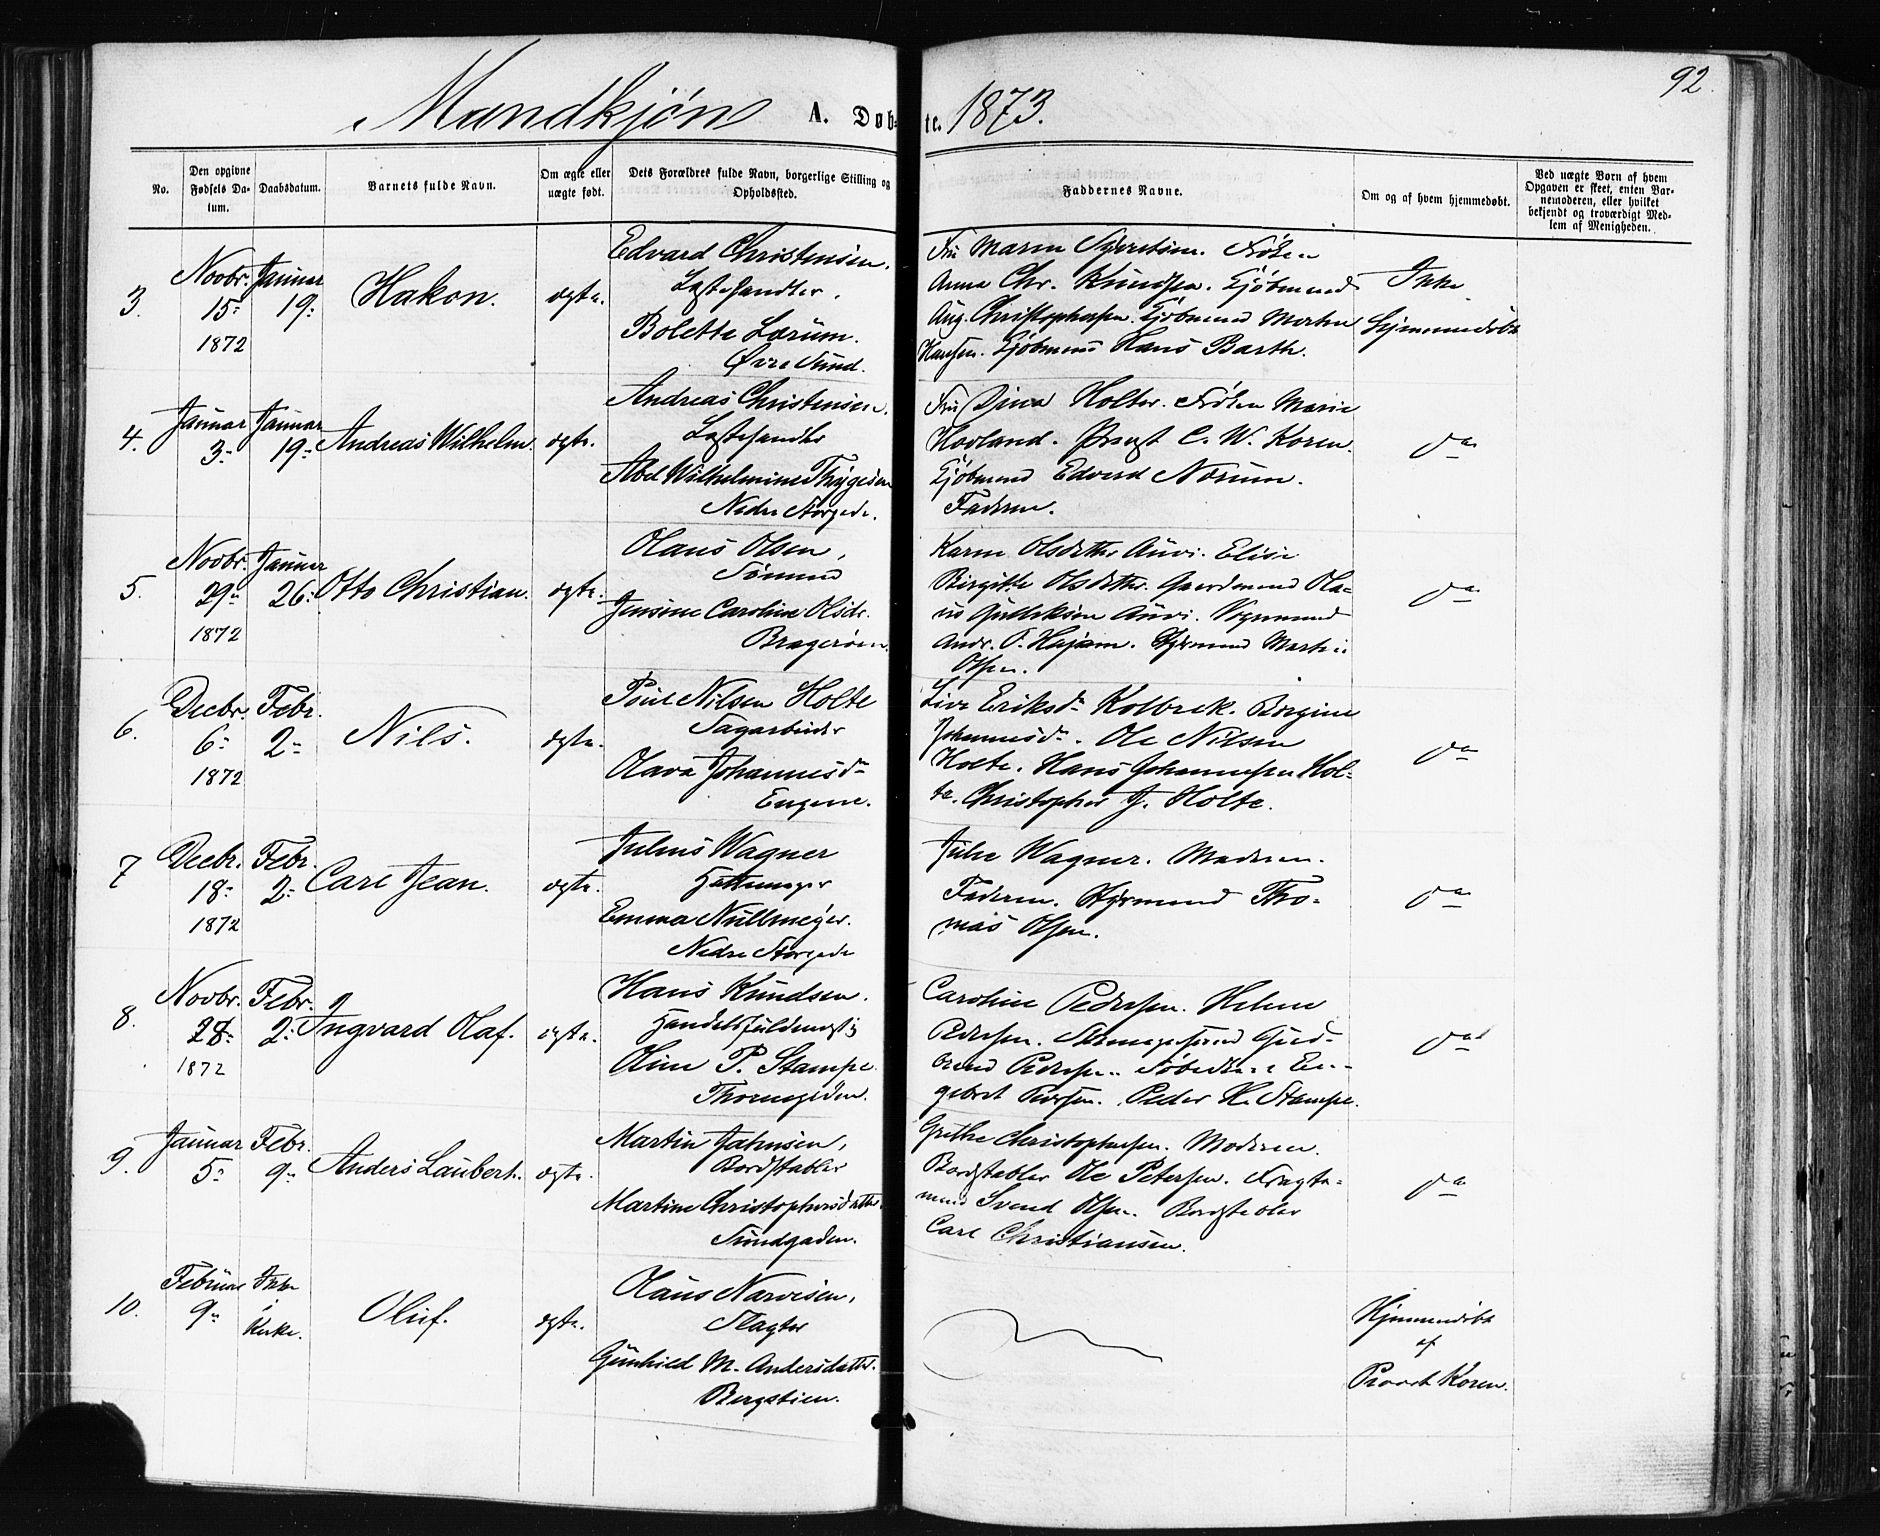 Mandkjøn A. Døb- te. 1873. 92.
No.
Den opgivne Fødsels Da- tum.
Daabsdatum.
Barnets fulde Navn.
Om ægte eller uægte født.
Dets Forældres fulde Navn, borgerlige Stilling og Opholdssted.
Faddernes Navne.
Om og af hvem hjemmedøbt.
Ved uægte Børn af hvem Opgaven er skeet, enten Bar- nemoderen, eller hvilket bekjendt og troværdigt Med- lem af Menigheden.
3.
Novbr. 15- 1872
Januar 19-
Hakon.
ægte.
Edvard Christensen.
Bolette Lærum.
Øvre Sund.
Fru Maren Frøken
Anna Chr. Knudsen. Kjøbmænd
Aug. Christophersen. Kjøbmand Morten
Hansen. Kjøbmand Hans Barth.
Ikke
hjemmedøbt
4.
Januar 3-
Januar 19-
Andreas Wilhelm.
ægte.
Andreas Christensen.
Abel Wilhelmine Thygesen
Nedre Storgade.
Fru Dina Holter. Frøken Marie
Hovland. Provst C. W. Koren.
Kjøbmand Edvard Nærum.
Faderen.
do
5.
Novbr. 29- 1872
Januar 26-
Otto Christian.
ægte.
Olaus Olsen,
Sømand
Jensine Caroline Olsdr.
Bragerøen.
Karen Olsdatter Elise
Birgitte Olsdatter. Gaardmand Ola-
us
Andr. Martin
Olsen.
do
6.
Decbr. 6- 1872
Febr. 2-
Nils.
ægte.
Poul Nilsen Holte
Sagarbeider
Olava Johannesdr
Engene.
Live Eriksdr Kolbrek. Borgine
Johannesdr. Ole Nilsen
Holte. Hans Johannesen Hol-
te. Christopher J. Holte.
do
7
Decbr. 18- 1872
Febr. 2-
Carl Jean.
ægte.
Julius Wagner
Hattemager
Emma Nullmeyer.
Nedre Storgade
Julie Wagner. Moderen.
Faderen. Tho-
mas Olsen.
do
8.
Novbr. 28- 1872
Febr. 2-
Ingvard Olaf.
ægte.
Hans Knudsen.
Handelsfuldmægtig
Oline P. Stampe.
Thornegaden.
Caroline Pedersen. Helene
Pedersen. Gud-
brand Pedersen. En-
gebret Peder H. Stampe.
do
9.
Januar 5-
Febr. 9-
Anders Laubert.
ægte.
Martin Johnsen,
Bordstabler
Martine Christophersdatter.
Sundgaden.
Grethe Christophersen. Moderen.
Bordstabler Ole Petersen. Fragte-
mand Svend Olsen. Bordstabler
Carl Christiansen.
do
10.
Februar 9-
Ikke i Kirke.
Oluf.
ægte.
Olaus Narvesen,
Slagter
Gunhild M. Andersdatter.
Bergstien.
Hjemmedøbt
af
Provst Koren.